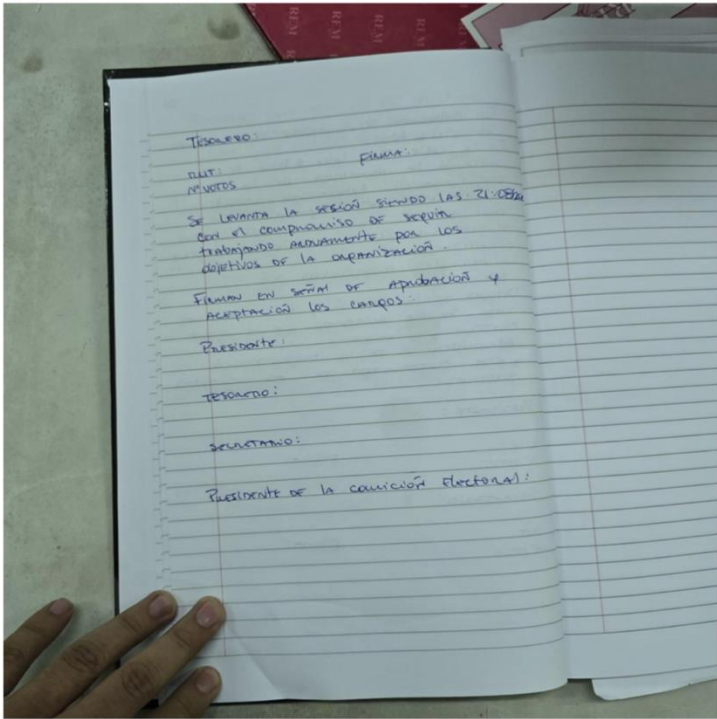 REM REM REM REM
TESORERO:
RUT: FIRMA:
Nº VOTOS
SE LEVANTA LA SESIOÑ SIENDO LAS 21:08
CON EL COMPROMISO DE SEGUIR
TRABAJANDO ARDUAMENTE POR LOS
OBJETIVOS DE LA ORGANIZACIOÑ.
FIRMAN EN SEÑAL DE APROBACIOÑ Y
ACEPTACIOÑ LOS CARGOS:
PRESIDENTE:
TESORERO:
SECRETARIO:
PRESIDENTE DE LA COMICIOÑ ELECTORAL: